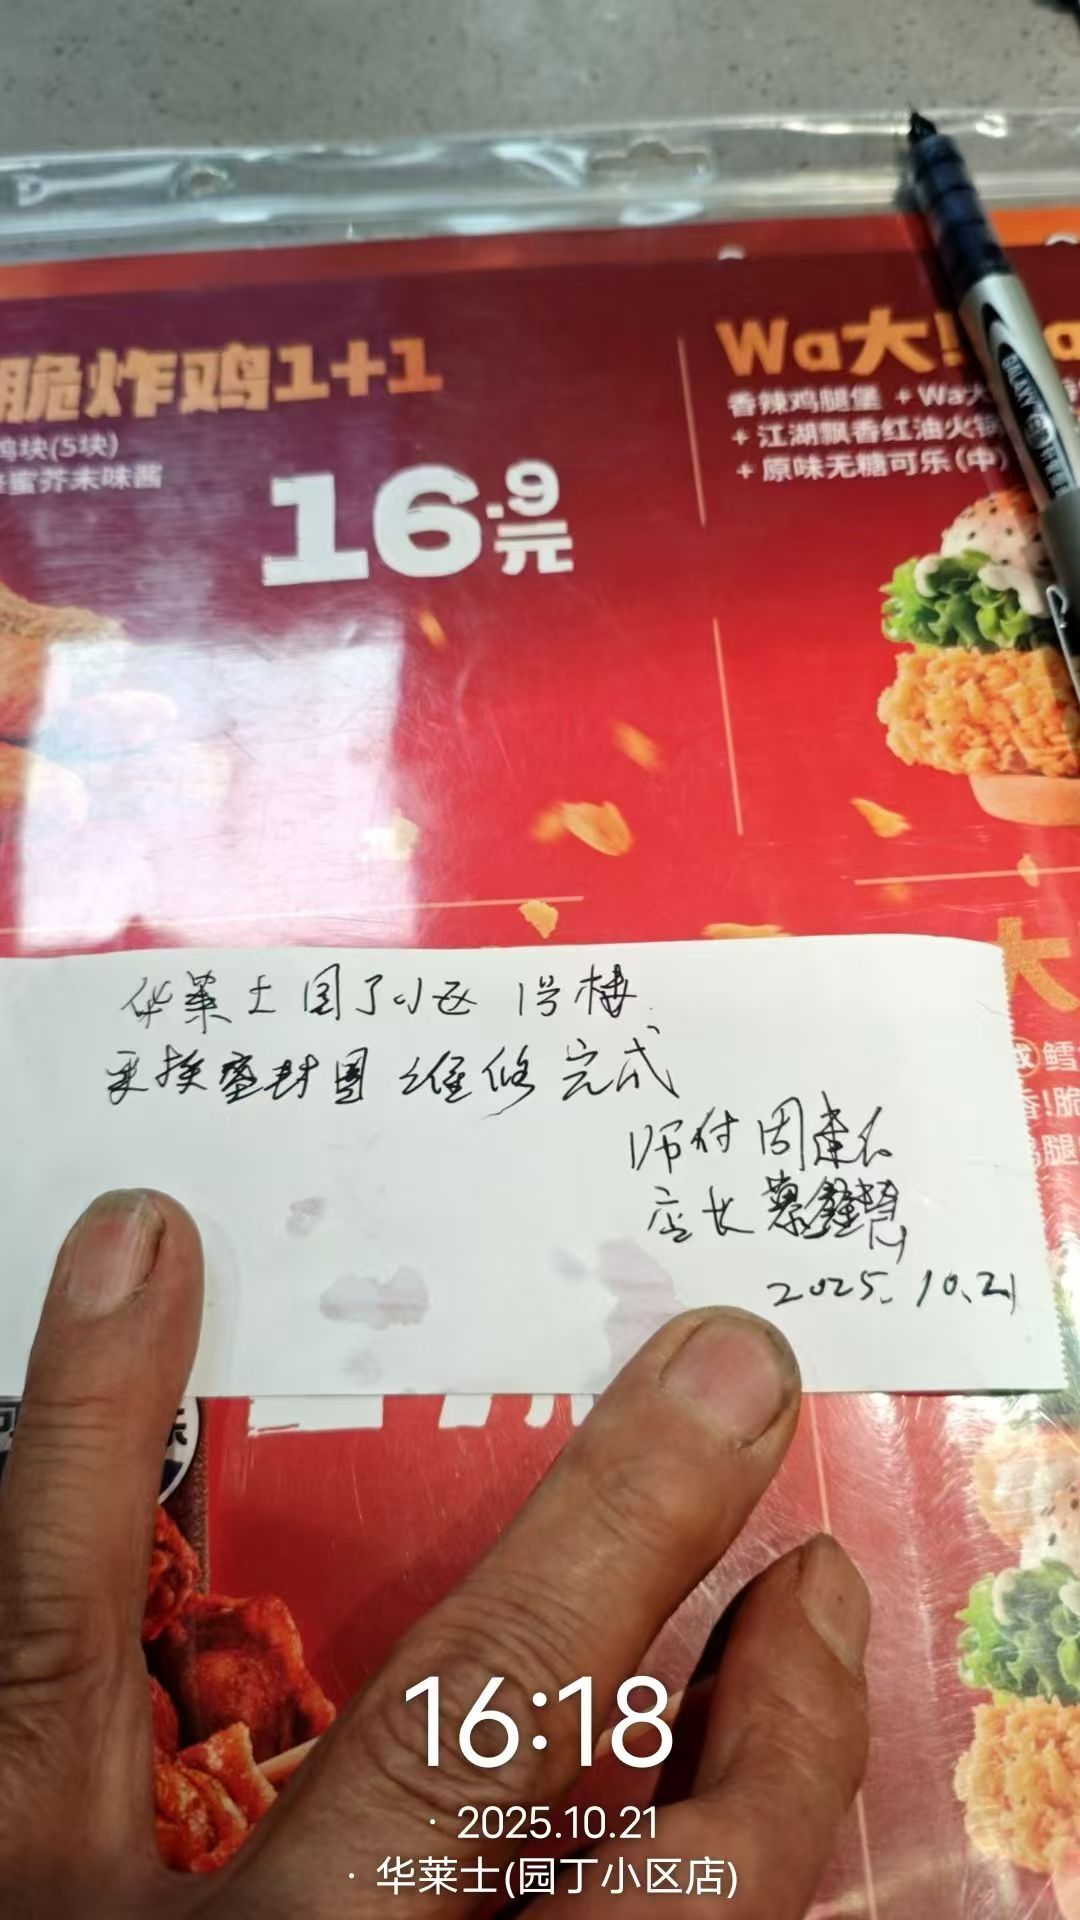 脆炸鸡1+1
鸡块(5块)
蜂蜜芥末味酱
16.9元
Wa大!
香辣鸡腿堡 + Wa大
+ 江湖飘香红油火锅
+ 原味无糖可乐(中)
大
鳕
香!脆
鸡腿
华莱士园丁小区 1号楼
更换密封圈 维修完成
师付 周建
店长
2025.10.21
16:18
· 2025.10.21
· 华莱士(园丁小区店)